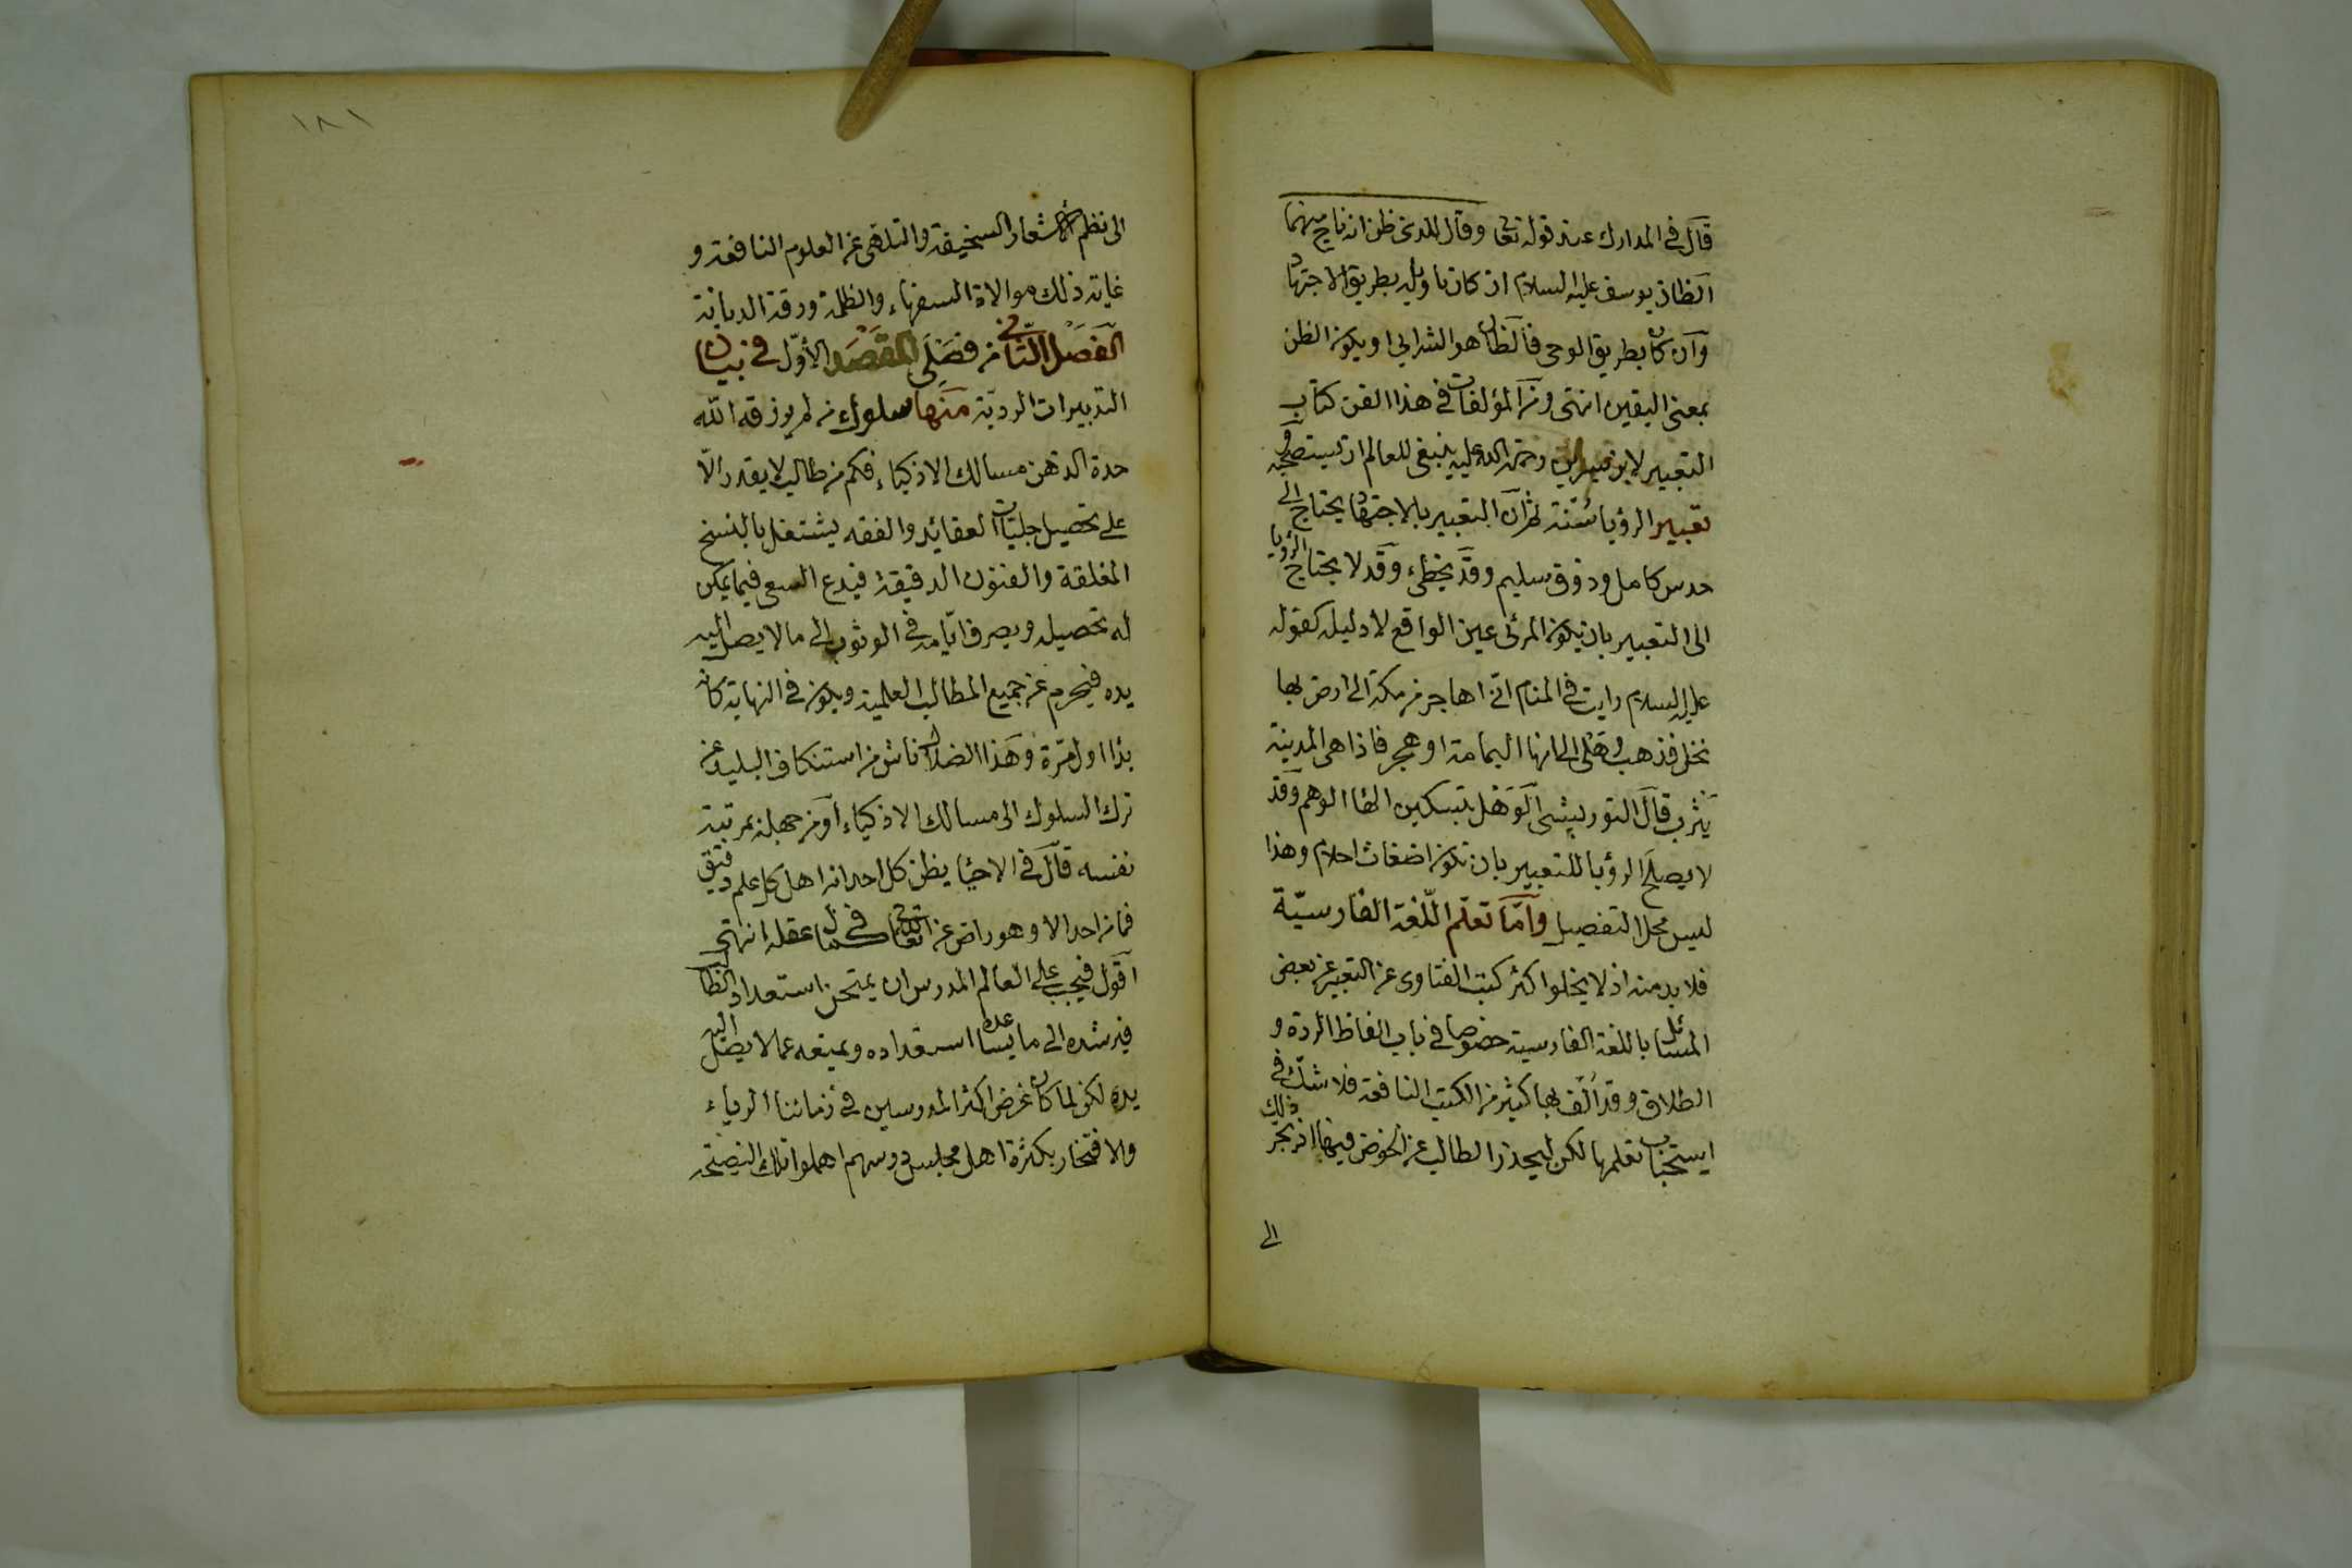 قال في المدارك عند قوله تعا وقال للذي ظن انه ناج منهما
الظان يوسف عليه السلام ان كان تاويله بطريق الاجتهاد
وان كان بطريق الوحى فالظان هو الشرابي او يكون الظن
بمعنى اليقين انتهى ومن المؤلفات في هذا الفن كتاب
التعبير لابن سيرين رحمة الله عليه ينبغى للعالم ان يستصحبه
تعبير الرؤيا سنة ثم ان التعبير بالاجتهاد يحتاج الى
حدس كامل وذوق سليم وقد يخطئ وقد لا يحتاج الرؤيا
الى التعبير بان يكون المرئى عين الواقع لا دليله كقوله
عليه السلام رايت في المنام انى اهاجر من مكة الى ارض بها
نخل فذهب وهلى الى انها اليمامة او هجر فاذا هى المدينة
يثرب قال التوربشتى الوهل بتسكين الهاء الوهم وقد
لا يصلح الرؤيا للتعبير بان تكون اضغاث احلام وهذا
ليس محل التفصيل واما تعلم اللغة الفارسية
فلا بد منه اذ لا يخلوا اكثر كتب الفتاوى عن التعبير عن بعض
المسائل باللغة الفارسية خصوصا في باب الفاظ الردة و
الطلاق وقد الف بها كثير من الكتب النافعة فلا شك في
استحباب تعلمها لكن ليحذر الطالب عن الخوض فيها اذ يجر ذلك
الى
١٨١
الى نظم الاشعار السخيفة والتلهى عن العلوم النافعة و
غاية ذلك موالاة السفهاء والظلمة ورقة الديانة
الفصل الثانى من فصلى المقصد الأول في بيان
التدبيرات الردية منها سلوك من لم يرزقه الله
حدة الذهن مسالك الاذكياء فكم من طالب لا يقدر الا
على تحصيل جليات العقائد والفقه يشتغل بالنسخ
المغلقة والفنون الدقيقة فيدع السعى فيما يمكن
له تحصيله ويصرف ايامه في الوثوب الى ما لا يصل اليه
يده فيحرم عن جميع المطالب العلمية ويكون في النهاية كان
بدا اول مرة وهذا الضلال ناش من استنكاف البليد عن
ترك السلوك الى مسالك الاذكياء او من جهله بمرتبة
نفسه قال في الاحيا يظن كل احد انه اهل لكل علم دقيق
فما من احد الا وهو راض عن الله تعا في كمال عقله انتهى
اقول فيجب على العالم المدرس ان يمتحن استعداد الطالب
فيرشده الى ما يساعده استعداده ويمنعه عما لا يصل اليه
يده لكن لما كان غرض اكثر المدرسين في زماننا الرياء
والافتخار بكثرة اهل مجلس دروسهم اهملوا تلك النصيحة